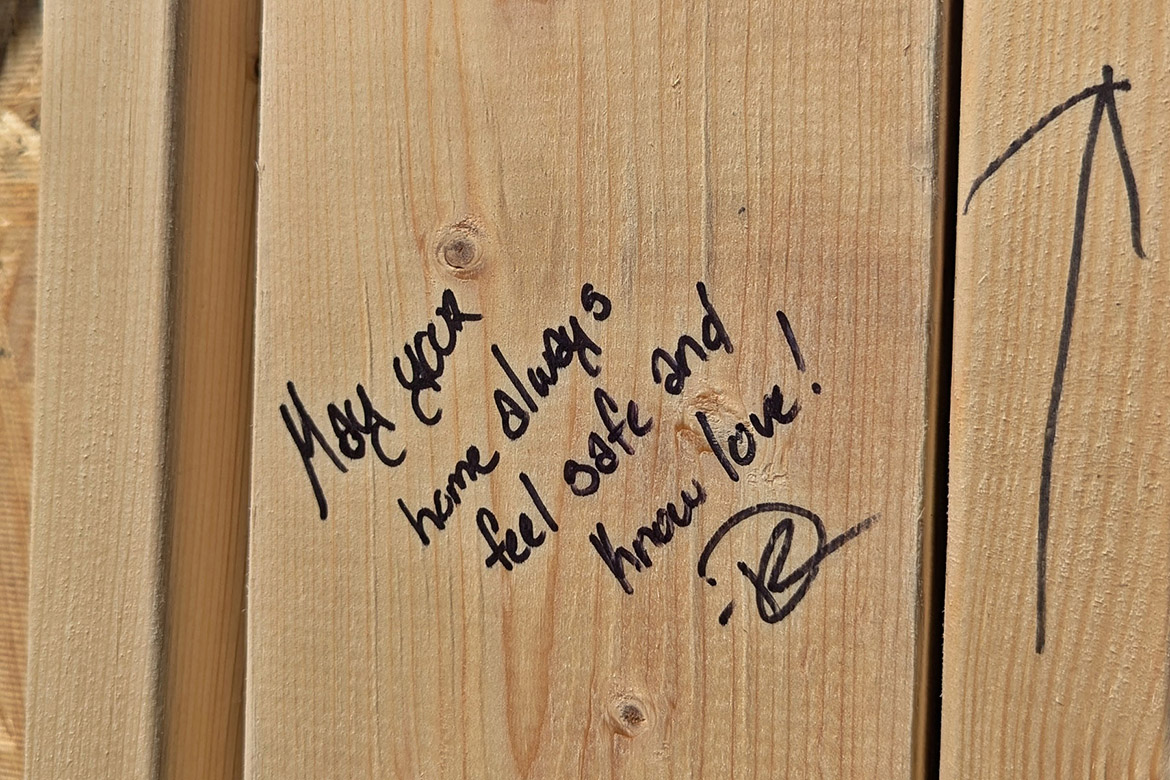 May your
home always
feel safe and
know love!